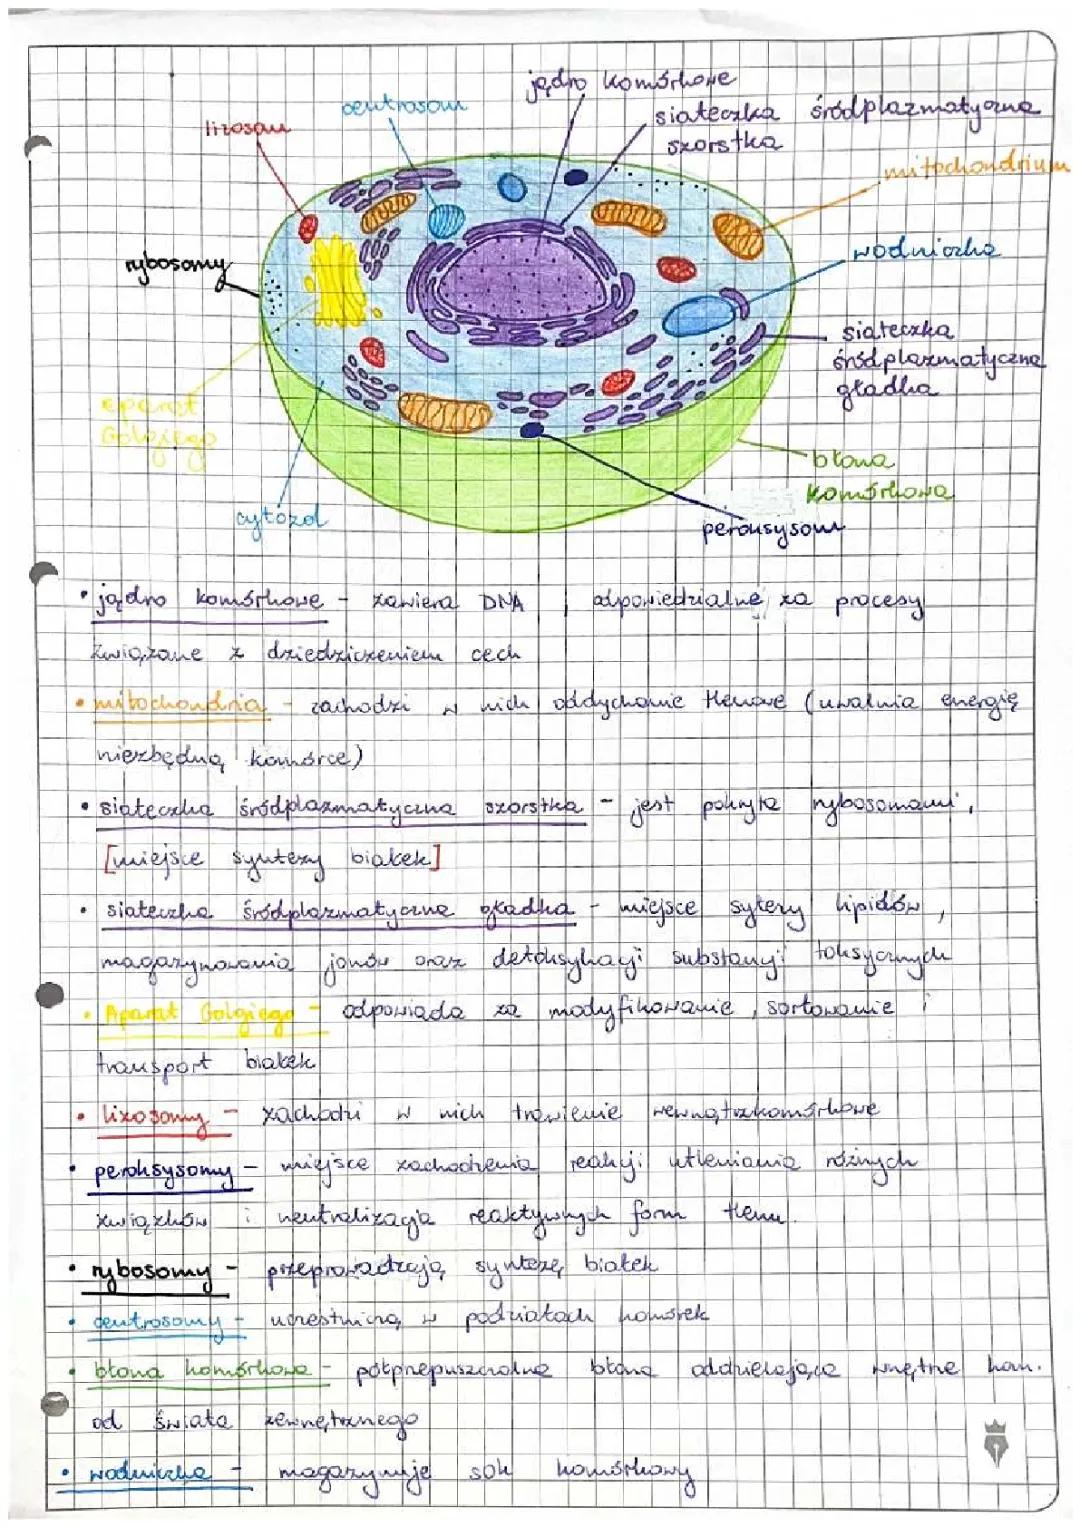 jądro komórkowe
centrosom
siateczka śródplazmatyczna
szorstka
lizosom
mitochondrium
wodniczka
rybosomy
siateczka
śródplazmatyczna
gładka
aparat
Golgiego
błona
komórkowa
cytozol
peroksysom
• jądro komórkowe - zawiera DNA, odpowiedzialne za procesy
związane z dziedziczeniem cech
• mitochondria - zachodzi w nich oddychanie tlenowe (uwalnia energię
niezbędną komórce)
• siateczka śródplazmatyczna szorstka - jest pokryta rybosomami,
[miejsce syntezy białek]
• siateczka śródplazmatyczna gładka - miejsce sytezy lipidów,
magazynowania jonów oraz detoksykacji substancji toksycznych
• Aparat Golgiego - odpowiada za modyfikowanie, sortowanie i
transport białek
• lizosomy - zachodzi w nich trawienie wewnątrzkomórkowe
• peroksysomy - miejsce zachodzenia reakcji utleniania różnych
związków i neutralizacja reaktywnych form tlenu.
• rybosomy - przeprowadzają syntezę białek
• centrosomy - uczestniczą w podziałach komórek
• błona komórkowa - półprzepuszczalna błona oddzielająca wnętrze kom.
od świata zewnętrznego
• wodniczka - magazynuje sok komórkowy